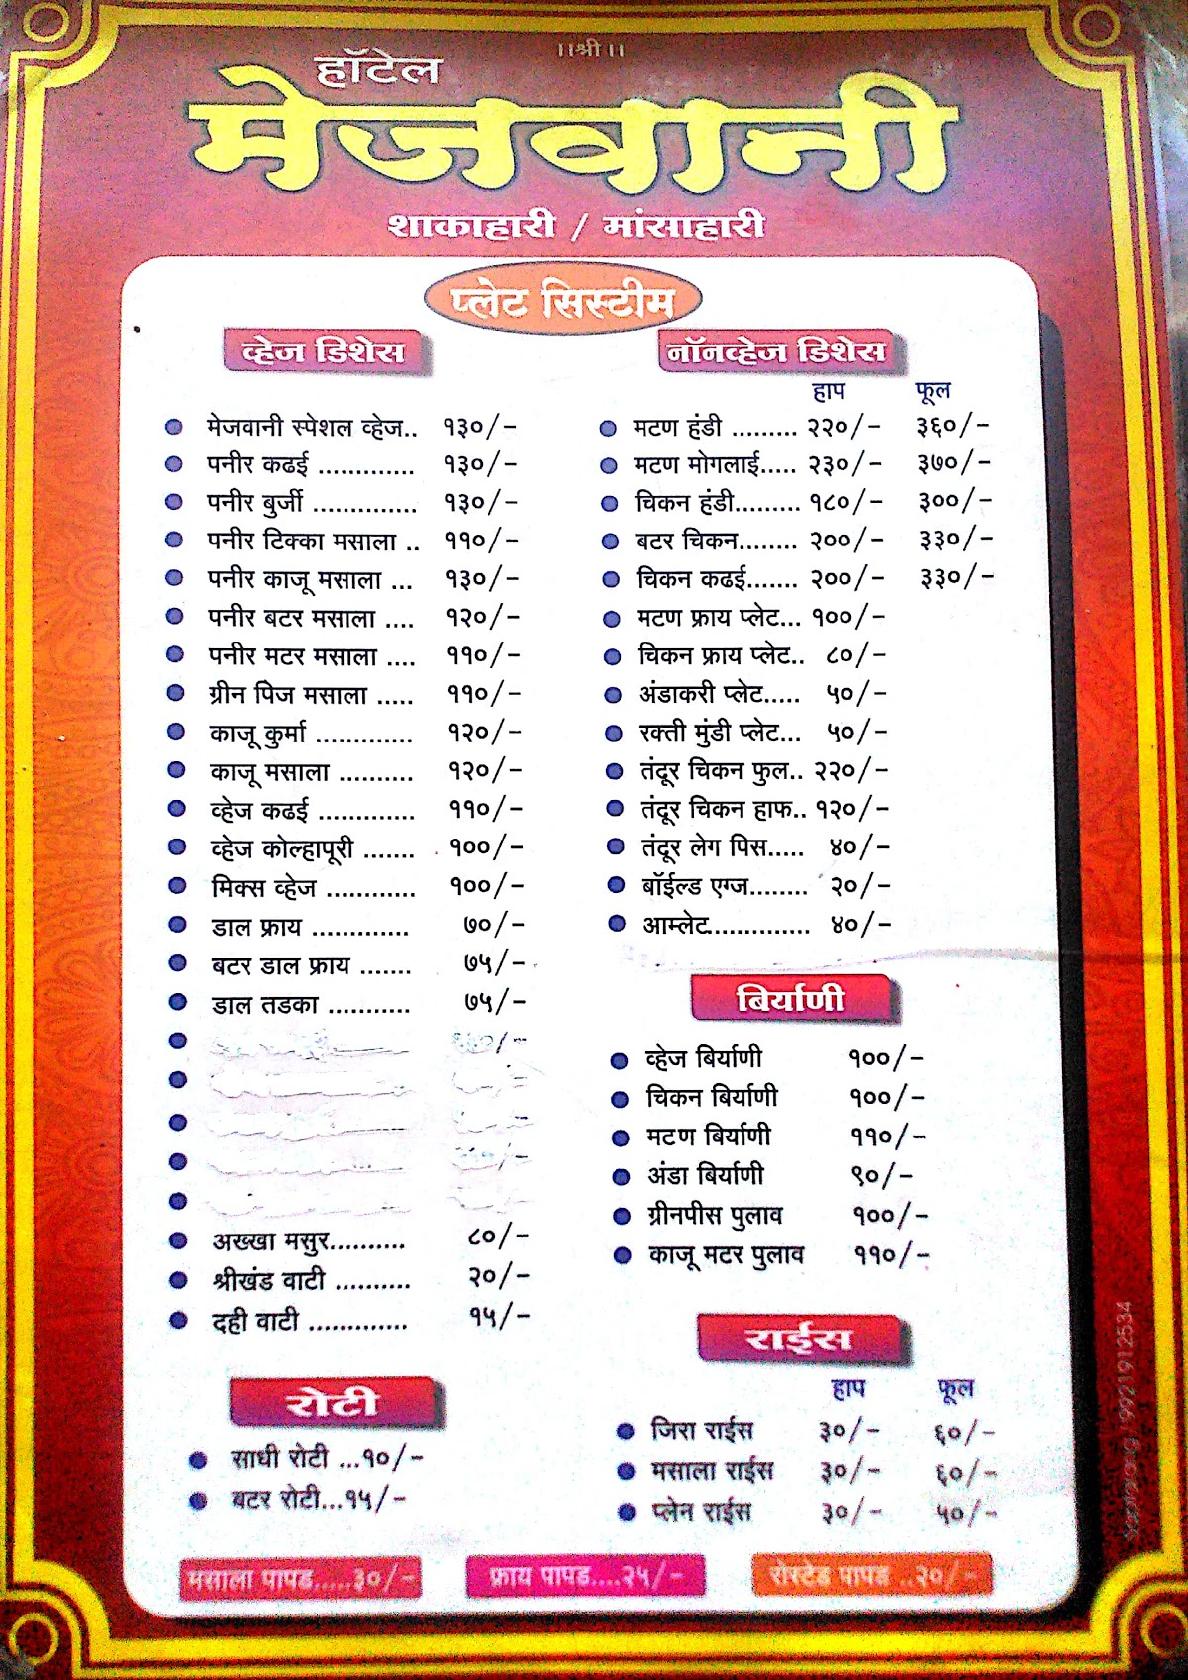 ।।श्री।।
हॉटेल
मेजवानी
शाकाहारी / मांसाहारी
प्लेट सिस्टीम
व्हेज डिशेस
मेजवानी स्पेशल व्हेज.. १३०/-
पनीर कढई ............. १३०/-
पनीर बुर्जी .............. १३०/-
पनीर टिक्का मसाला .. ११०/-
पनीर काजू मसाला ... १३०/-
पनीर बटर मसाला .... १२०/-
पनीर मटर मसाला .... ११०/-
ग्रीन पिज मसाला ..... ११०/-
काजू कुर्मा ............. १२०/-
काजू मसाला .......... १२०/-
व्हेज कढई ............. ११०/-
व्हेज कोल्हापूरी ....... १००/-
मिक्स व्हेज ............ १००/-
डाल फ्राय ............. ७०/-
बटर डाल फ्राय ....... ७५/-
डाल तडका ........... ७५/-
अख्खा मसुर.......... ८०/-
श्रीखंड वाटी .......... २०/-
दही वाटी ............. १५/-
रोटी
साधी रोटी ...१०/-
बटर रोटी...१५/-
नॉनव्हेज डिशेस
हाप फूल
मटण हंडी ......... २२०/- ३६०/-
मटण मोगलाई..... २३०/- ३७०/-
चिकन हंडी......... १८०/- ३००/-
बटर चिकन........ २००/- ३३०/-
चिकन कढई....... २००/- ३३०/-
मटण फ्राय प्लेट... १००/-
चिकन फ्राय प्लेट.. ८०/-
अंडाकरी प्लेट..... ५०/-
रक्ती मुंडी प्लेट... ५०/-
तंदूर चिकन फुल.. २२०/-
तंदूर चिकन हाफ.. १२०/-
तंदूर लेग पिस..... ४०/-
बॉईल्ड एग्ज........ २०/-
आम्लेट.............. ४०/-
बिर्याणी
व्हेज बिर्याणी १००/-
चिकन बिर्याणी १००/-
मटण बिर्याणी ११०/-
अंडा बिर्याणी ९०/-
ग्रीनपीस पुलाव १००/-
काजू मटर पुलाव ११०/-
राईस
हाप फूल
जिरा राईस ३०/- ६०/-
मसाला राईस ३०/- ६०/-
प्लेन राईस ३०/- ५०/-
मसाला पापड.....३०/-
फ्राय पापड....२५/-
रोस्टेड पापड ..२०/-
9921912534